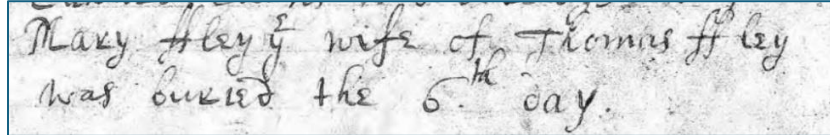 Mary ffley yᵉ wife of Thomas ffley
was buried the 6.th day.